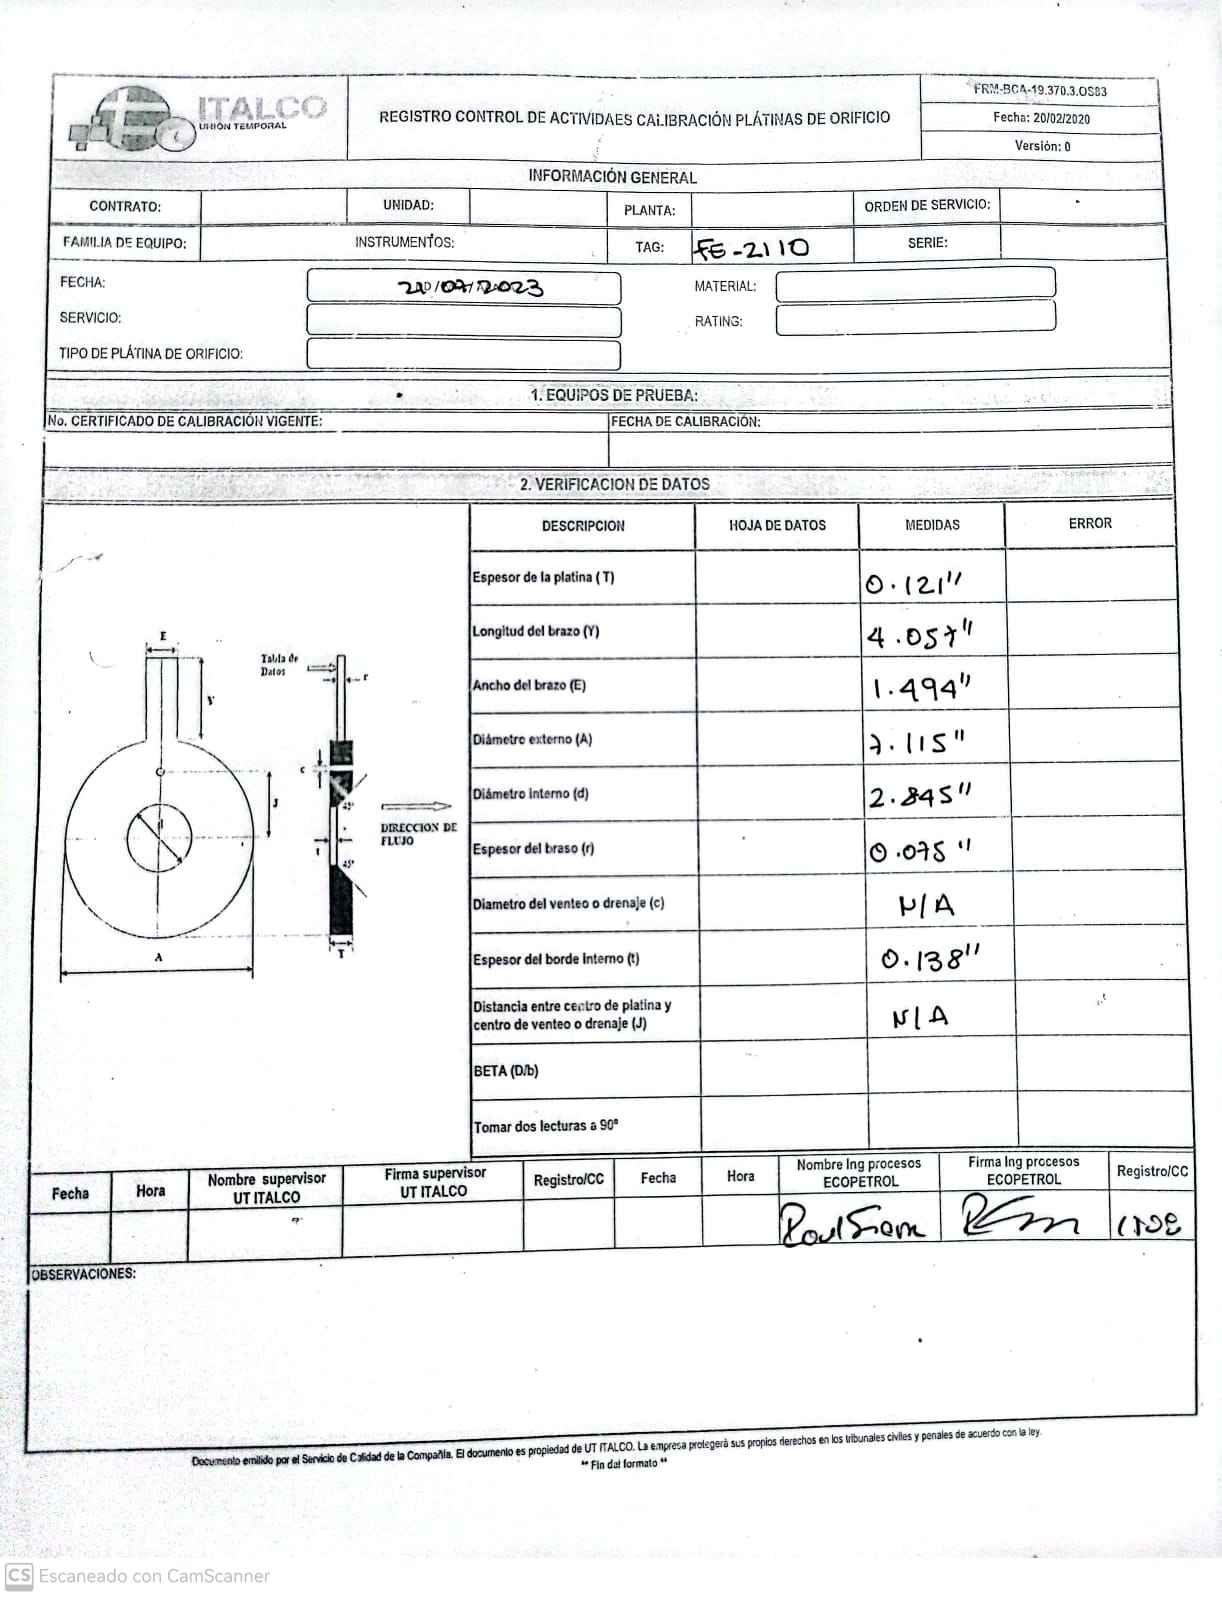 ITALCO
UNIÓN TEMPORAL
REGISTRO CONTROL DE ACTIVIDAES CALIBRACIÓN PLÁTINAS DE ORIFICIO
FRM-BCA-19.370.3.OS83
Fecha: 20/02/2020
Versión: 0
INFORMACIÓN GENERAL
CONTRATO: UNIDAD: PLANTA: ORDEN DE SERVICIO:
FAMILIA DE EQUIPO: INSTRUMENTOS: TAG: FE-2110 SERIE:
FECHA: MATERIAL:
SERVICIO: RATING:
TIPO DE PLÁTINA DE ORIFICIO:
1. EQUIPOS DE PRUEBA:
No. CERTIFICADO DE CALIBRACIÓN VIGENTE: FECHA DE CALIBRACIÓN:
2. VERIFICACION DE DATOS
DESCRIPCION HOJA DE DATOS MEDIDAS ERROR
Espesor de la platina (T) 0.121"
Longitud del brazo (Y) 4.057"
Ancho del brazo (E) 1.494"
Diámetro externo (A) 7.115"
Diámetro interno (d) 2.845"
Espesor del braso (r) 0.075"
Diametro del venteo o drenaje (c) N/A
Espesor del borde interno (t) 0.138"
Distancia entre centro de platina y
centro de venteo o drenaje (J) N/A
BETA (D/b)
Tomar dos lecturas a 90°
E
Tabla de
Datos
r
Y
c
J
d
45°
DIRECCION DE
FLUJO
t
45°
T
A
Fecha Hora Nombre supervisor
UT ITALCO Firma supervisor
UT ITALCO Registro/CC Fecha Hora Nombre Ing procesos
ECOPETROL Firma Ing procesos
ECOPETROL Registro/CC
OBSERVACIONES:
Documento emitido por el Servicio de Calidad de la Compañía. El documento es propiedad de UT ITALCO. La empresa protegerá sus propios derechos en los tribunales civiles y penales de acuerdo con la ley.
** Fin del formato **
CS Escaneado con CamScanner